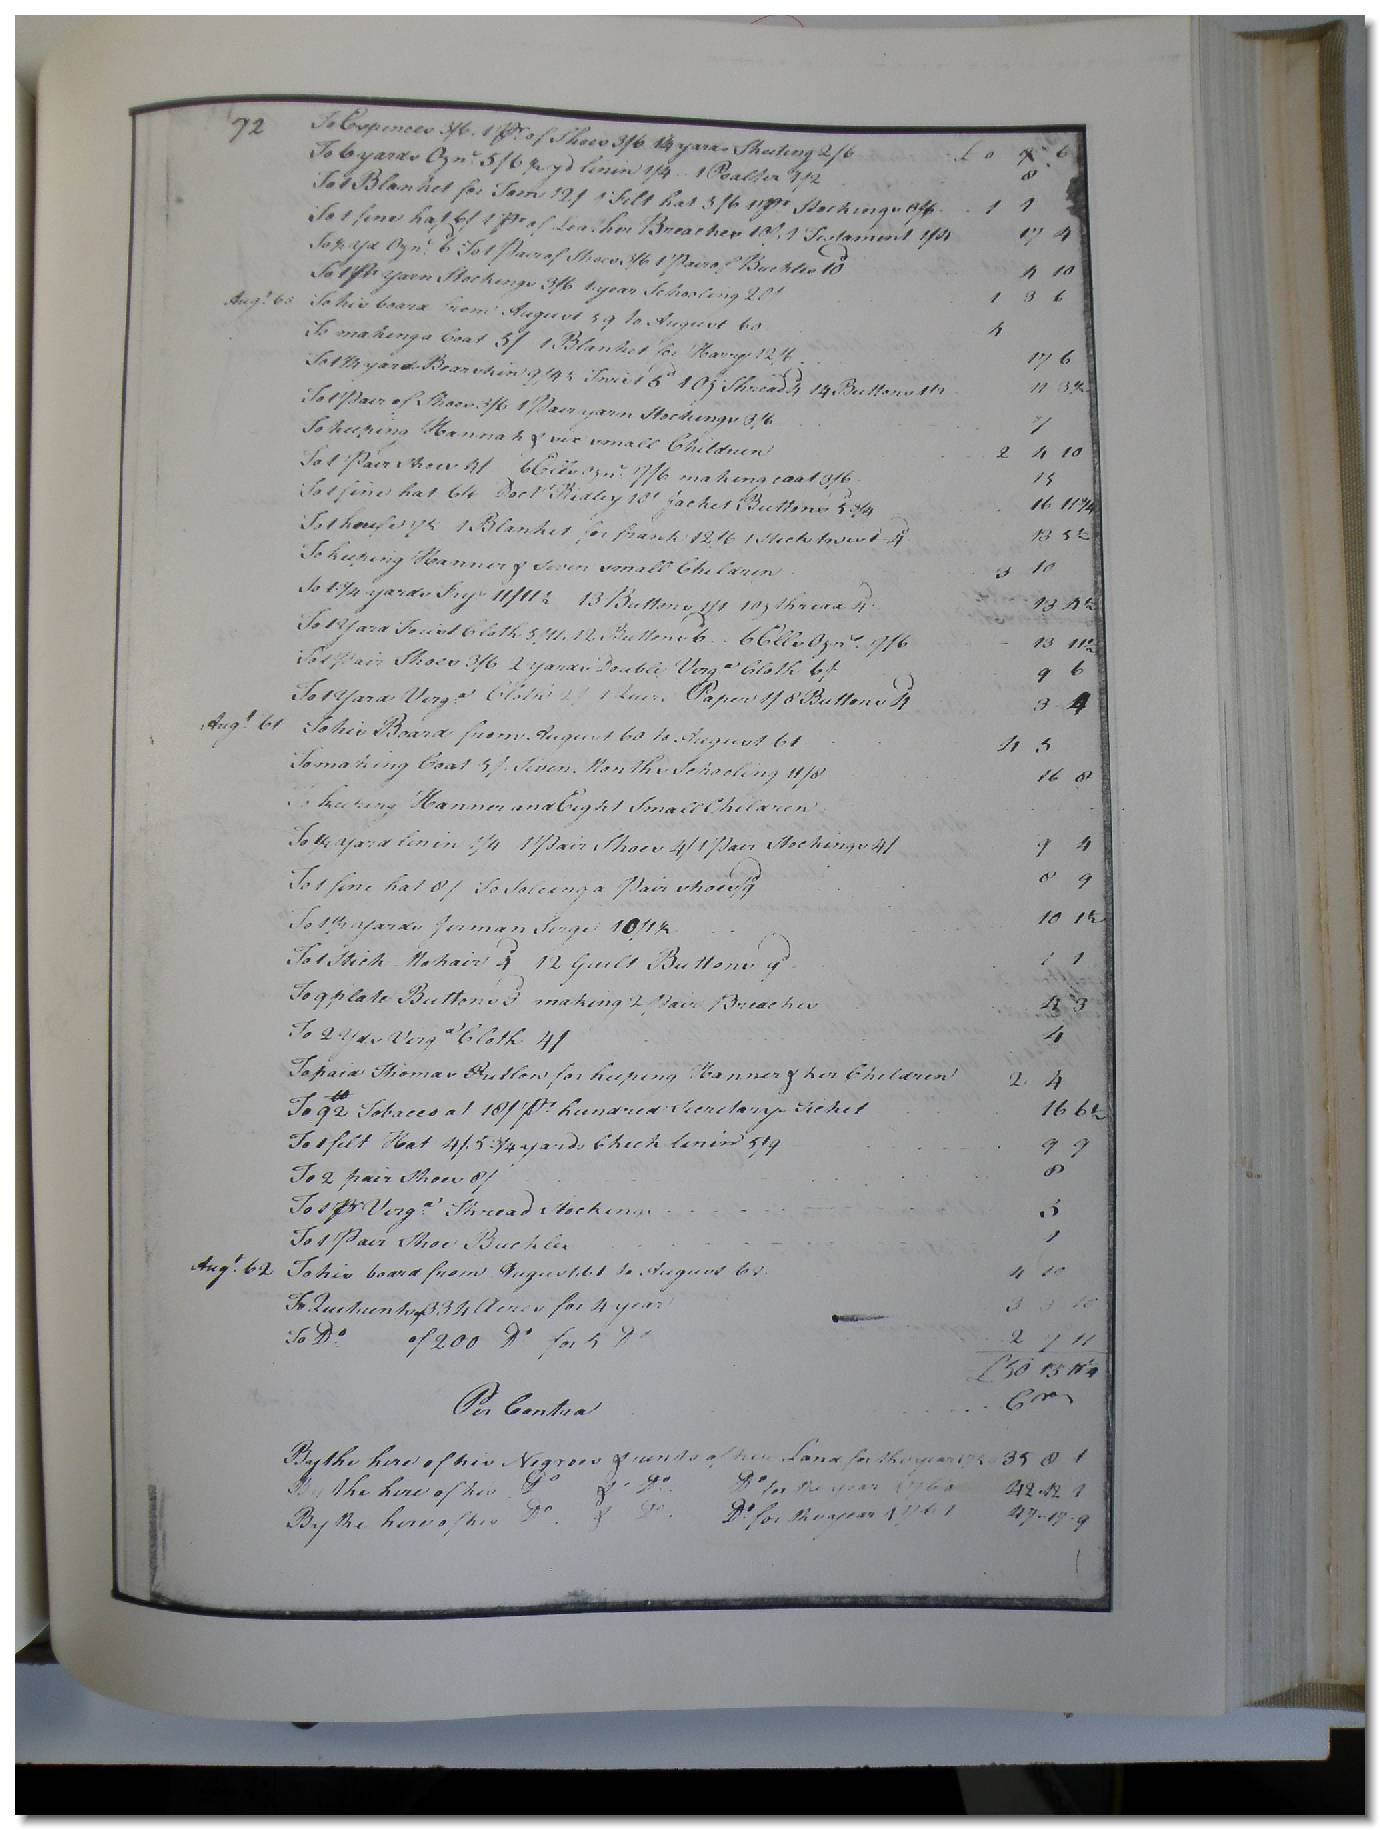 72 To Expences 3/6. 1 Pr. of Shoes 3/6 1¼ yards Sheeting 2/6 £ 0 9 6
To 6 yards Ozn. 5/6 yd linin 1/4 1 Psalter 1/2 8
To 1 Blanket for Sam 12/ 1 Felt hat 3/6 1 Pr Stockings 1 1
To 1 fine hat 6/ 1 Pr of Leather Breaches 10/. 1 Testament 1/4 17 4
To yd Ozn. 6d To 1 Pair of Shoes 3/6 1 Pair of Buckles 10d 4 10
To 1 Pr yarn Stockings 3/6 1 year Schooling 20/ 1 3 6
Augt. 60 To his board from August 59 to August 60 4
To making a Coat 5/ 1 Blanket for Harry 12/6 17 6
To 1½ yards Bearskin 9/4½ Twist 5d 1 Oz Thread 4d 14 Buttons 11 3½
To 1 Pair of Shoes 3/6 1 Pair yarn Stockings 3/6 7
To keeping Hannah & six small Children 2 4 10
To 1 Pair Shoes 4/ 6 Ells Ozn. 7/6 making coat 3/6 15
To 1 fine hat 6/6 Doctr Ridley 10/ Jacket Buttons 5¾ 16 11¾
To 1 1 Blanket for frank 12/6 1 stick twist 4d 13 5½
To keeping Hanner & seven small Children 3 10
To 1¾ yards 11/11½ 13 Buttons 1/1 1 oz thread 4d 13 4½
To 1 Yard Cloth 5/11½ 12 Buttons 6d 6 Ells Ozn. 7/6 13 11½
To 1 Pair Shoes 3/6 2 yards Double Virga Cloth 6/ 9 6
To 1 Yard Virga Cloth 2/ 1 Quire Paper 1/ 8 Buttons 4d 3 4
Augt. 61 To his Board from August 60 to August 61 4 5
To making Coat 5/ Seven Months Schooling 11/8 16 8
To keeping Hanner and Eight Small Children
To 1½ Yard linin 1/4 1 Pair Shoes 4/ 1 Pair Stockings 4/ 9 4
To 1 fine hat 8/ To Soleing a Pair shoes 9d 8 9
To 1½ yards German Serge 10/1½ 10 1½
To 1 Stick Mohair 4d 12 Guilt Buttons 9d 1 1
To 9 plate Buttons 3d making 2 Pair Breaches 4 3
To 2 Yds Virga Cloth 4/ 4
To paid Thomas Outlow for keeping Hanner & her Children 2 4
To 92tt Tobacco at 18/ Pr. hundred Secretarys ticket 16 6½
To 1 felt Hat 4/. 5¾ yards Check linin 5/9 9 9
To 2 pair Shoes 8/ 8
To 1 Pr Virga Thread Stockings 5
To 1 Pair Shoe Buckles 1
Augt. 62 To his board from August 61 to August 62 4 10
To Quitrents of 334 Acres for 4 year 3 3 10
To Do. of 200 Do for 5 Do 2 7 11
£50 15 11¼
Per Contra Cr
By the hire of his Negroes & rents of his Land for the year 35 8 1
By the hire of his Do & Do. Do for the year 1760 42 12 1
By the hire of his Do. & Do. Do for the year 1761 47 17 9